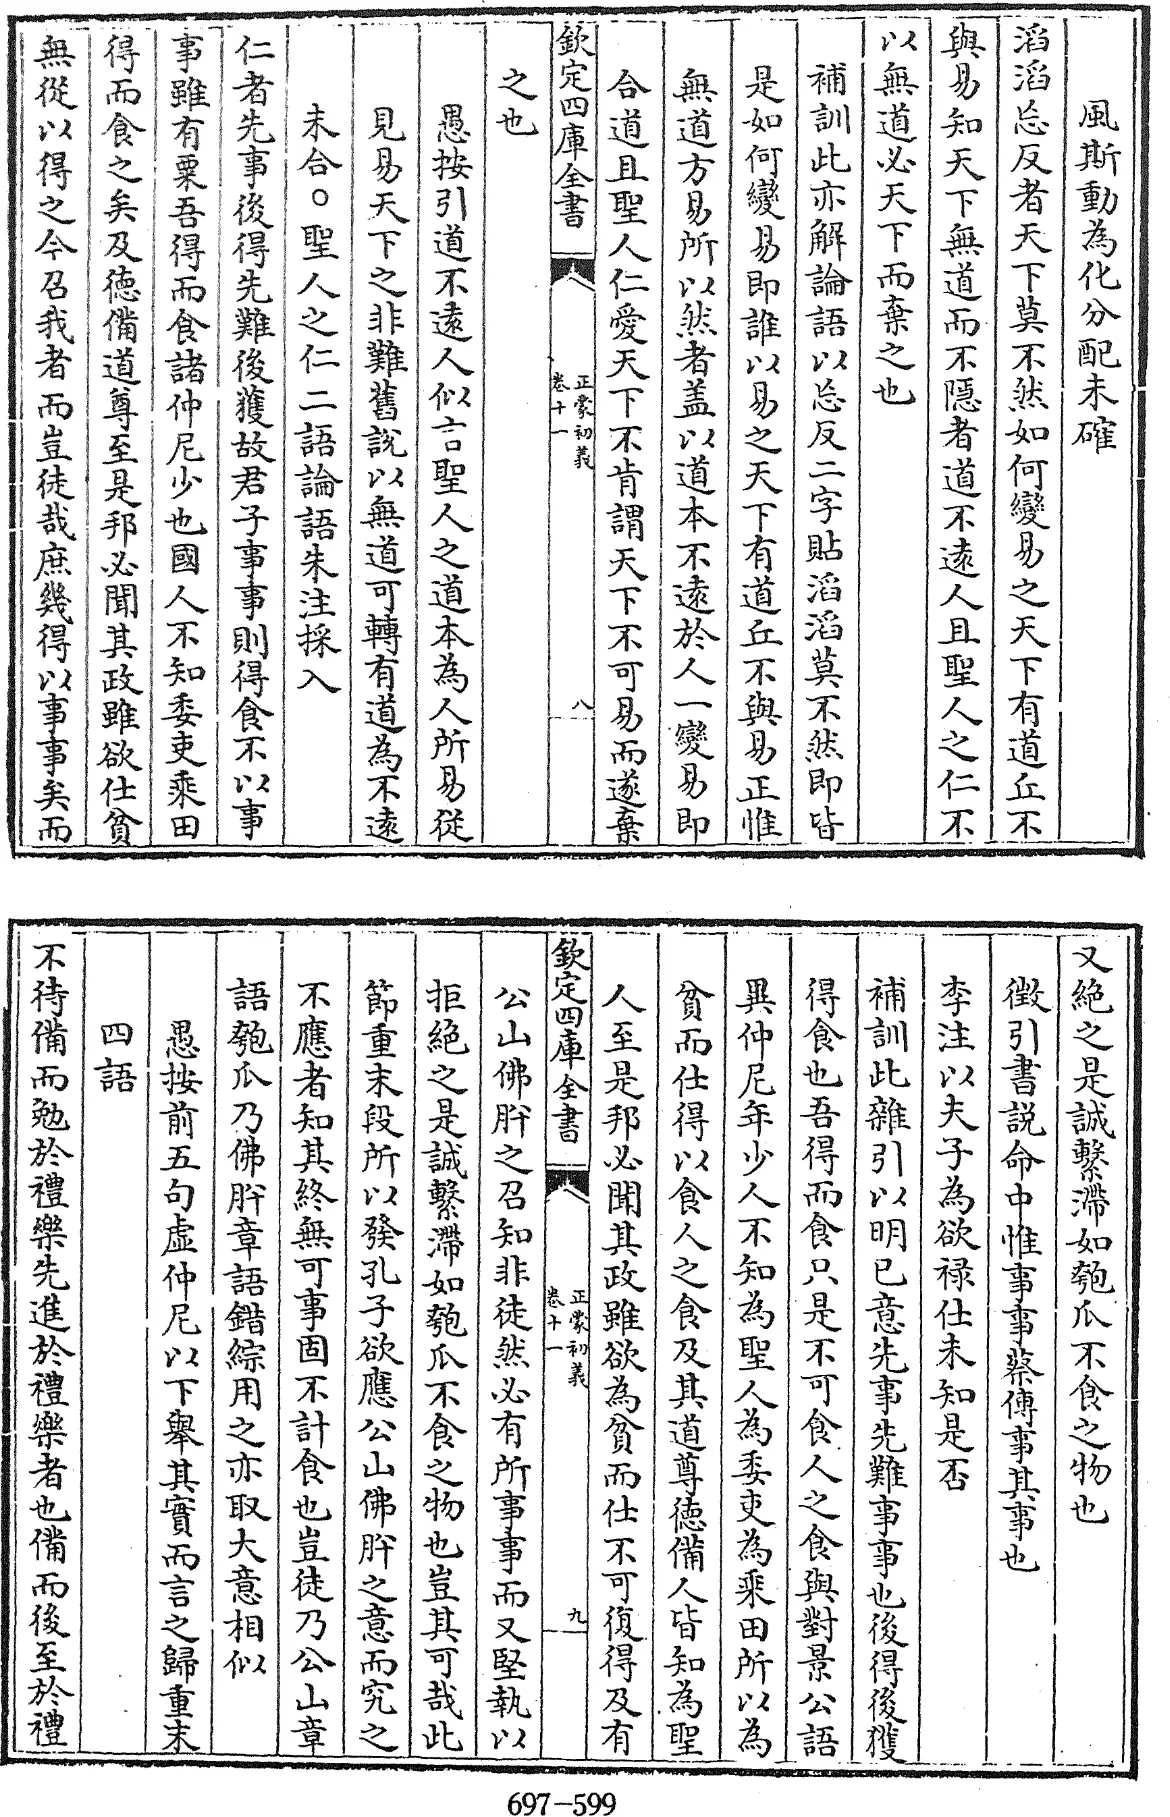 風斯動為化分配未確
滔滔忘反者天下莫不然如何變易之天下有道丘不
與易知天下無道而不隱者道不遠人且聖人之仁不
以無道必天下而棄之也
補訓此亦解論語以忘反二字貼滔滔莫不然即皆
是如何變易即誰以易之天下有道丘不與易正惟
無道方易所以然者盖以道本不遠於人一變易即
合道且聖人仁愛天下不肯謂天下不可易而遂棄
欽定四庫全書
正蒙初義
卷十一
八
之也
愚按引道不遠人似言聖人之道本為人所易從
見易天下之非難舊説以無道可轉有道為不遠
未合○聖人之仁二語論語朱注採入
仁者先事後得先難後獲故君子事事則得食不以事
事雖有粟吾得而食諸仲尼少也國人不知委吏乘田
得而食之矣及徳備道尊至是邦必聞其政雖欲仕貧
無從以得之今召我者而豈徒哉庶幾得以事事矣而
又絶之是誠繫滯如匏瓜不食之物也
徴引書説命中惟事事蔡傳事其事也
李注以夫子為欲禄仕未知是否
補訓此雜引以明已意先事先難事事也後得後獲
得食也吾得而食只是不可食人之食與對景公語
異仲尼年少人不知為聖人為委吏為乘田所以為
貧而仕得以食人之食及其道尊徳備人皆知為聖
人至是邦必聞其政雖欲為貧而仕不可復得及有
欽定四庫全書
正蒙初義
卷十一
九
公山佛肸之召知非徒然必有所事事而又堅執以
拒絶之是誠繫滯如匏瓜不食之物也豈其可哉此
節重末段所以發孔子欲應公山佛肸之意而究之
不應者知其終無可事固不計食也豈徒乃公山章
語匏瓜乃佛肸章語錯綜用之亦取大意相似
愚按前五句虚仲尼以下舉其實而言之歸重末
四語
不待備而勉於禮樂先進於禮樂者也備而後至於禮
697-599